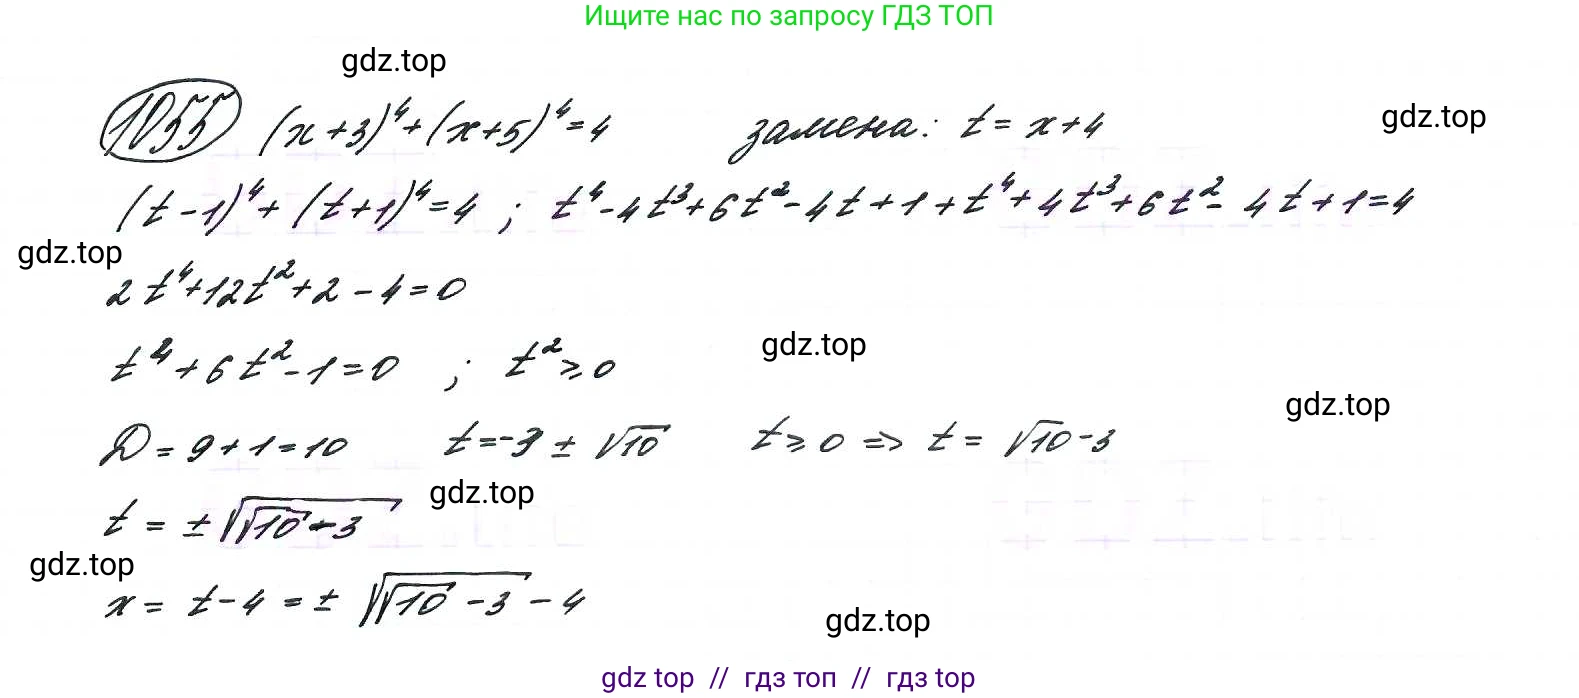 Ищите нас по запросу ГДЗ ТОП
gdz.top
1055 (x+3)⁴+(x+5)⁴=4 замена: t = x+4
gdz.top
(t-1)⁴+(t+1)⁴=4 ; t⁴-4t³+6t²-4t+1+t⁴+4t³+6t²-4t+1=4
gdz.top
2t⁴+12t²+2-4=0
t⁴+6t²-1=0 ; t²≥0
gdz.top
gdz.top
D=9+1=10 t=-3±√10 t≥0 => t=√10-3
gdz.top
t = ±√(√10-3)
gdz.top
x = t-4 = ±√(√10-3)-4
gdz.top
gdz top // гдз топ // gdz top